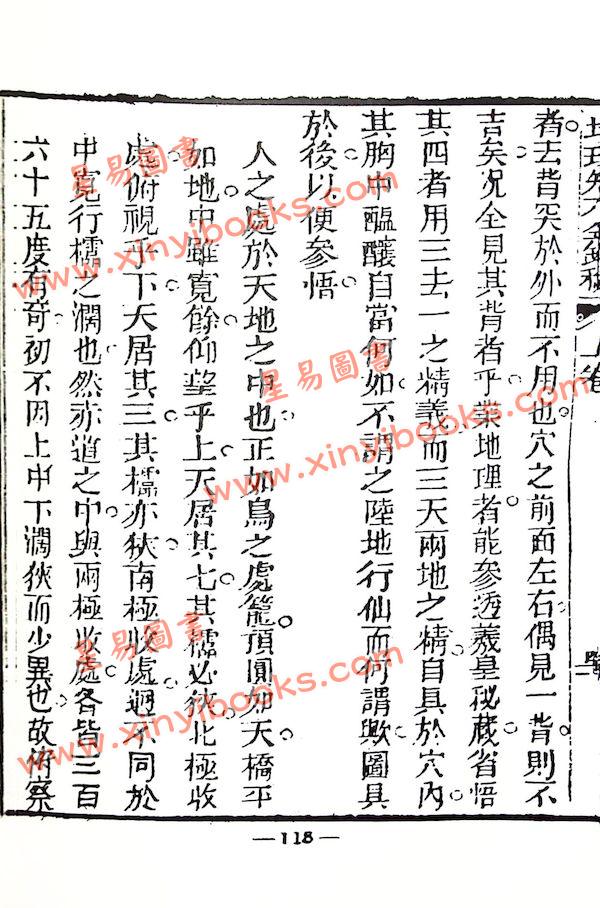 者去背突於外而不用也穴之前面左右偶見一背則不
吉矣况全見其背者乎業地理者能參透羲皇秘藏省悟
其四者用三去一之精義而三天兩地之精自具於穴內
其胸中醞釀自當何如不謂之陸地行仙而何謂歟圖具
於後以便參悟
人之處於天地之中也正如鳥之處籠預圓如天橋平
如地中雖寬餘仰望乎上天居其七其橋必狹北極收
處俯視乎下天居其三其橋亦狹南極收處迥不同於
中寬行橋之濶也然赤道之中與兩極收處各皆三百
六十五度有奇初不因上中下濶狹而少異也故術察
— 118 —
星易圖書
www.xinyibooks.com
星易圖書
www.xinyibooks.com
星易圖書
www.xinyibooks.com